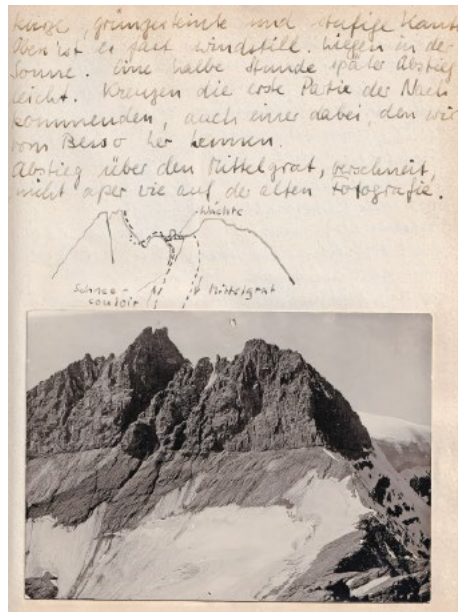 kurze, grüngesteinte und stufige Kante
Oben ist es fast windstill. Liegen in der
Sonne. Eine halbe Stunde später Abstieg
leicht. Kreuzen die erste Partie der Nach
kommenden, auch einer dabei, den wir
vom her kennen.
Abstieg über den Mittelgrat, verschneit,
nicht aper wie auf der alten Fotografie.
Wächte
Schnee-
couloir
Mittelgrat